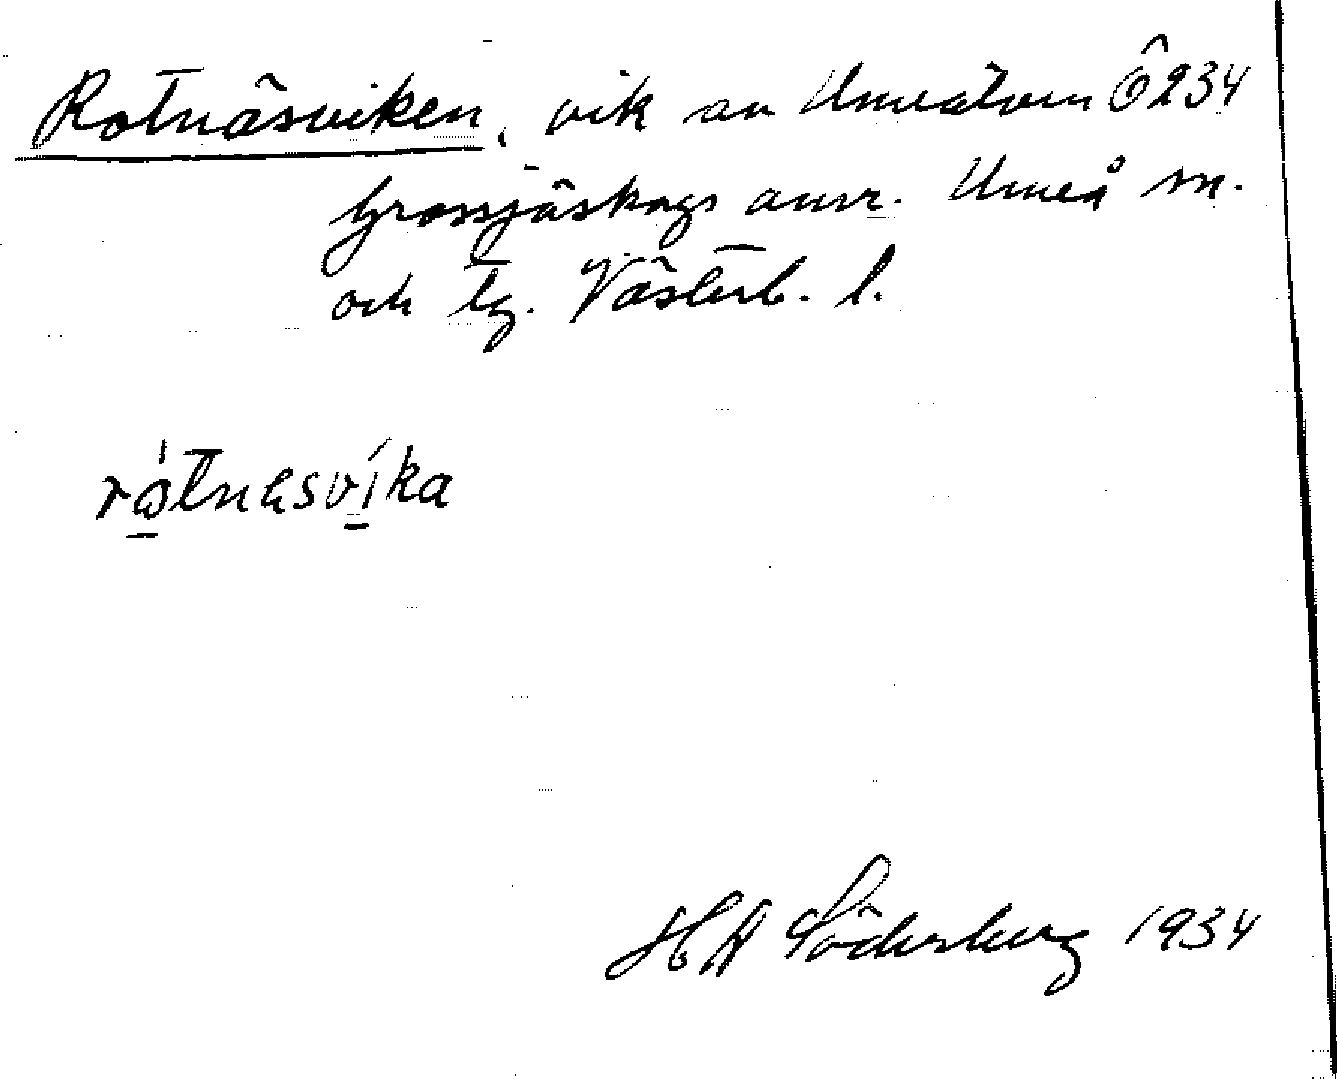 Rotnäsviken, vik av Umeälven Ö234
Grossjöskogs anvr. Umeå sn.
och tg. Västerb. l.
rótnɛsvíka
HA Söderberg 1934